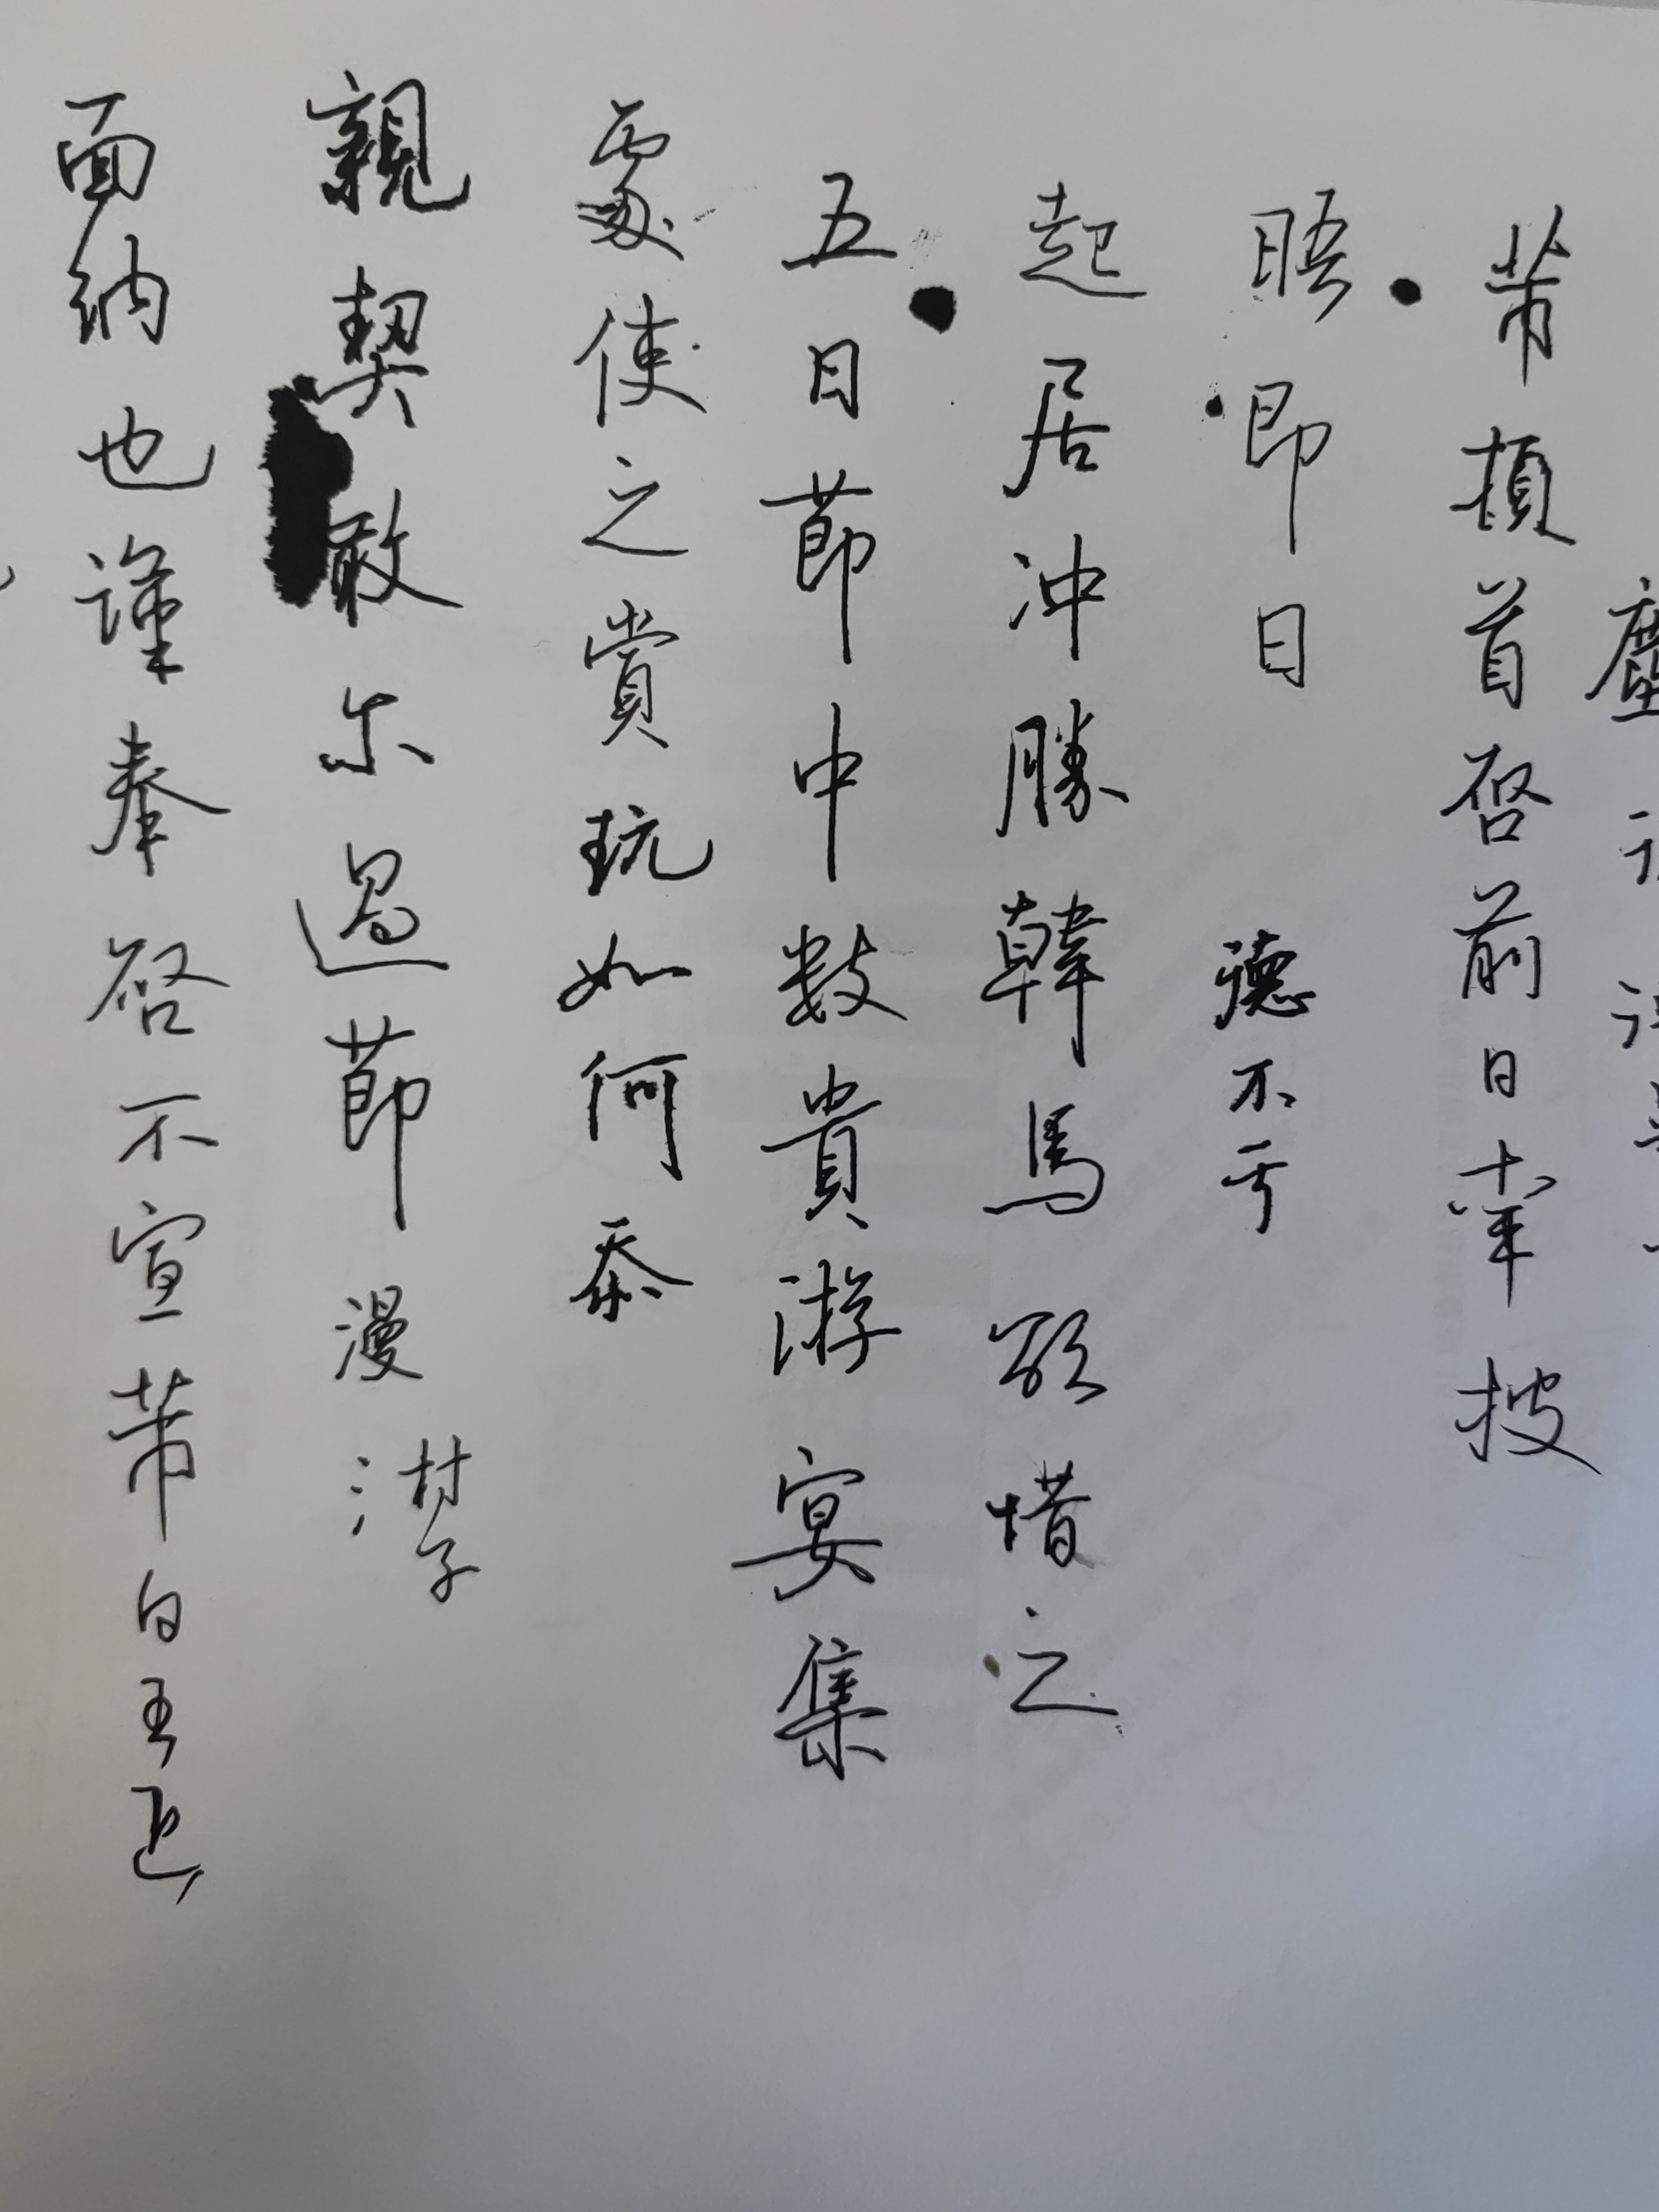 塵
芾頓首啓前日幸披
晤即日 德不亏
起居冲勝韓馬欲惜之
五日莭中数貴游宴集
處使之賞玩如何忝
親契敢尔過莭漫 村子
面納也謹奉啓不宣芾白王